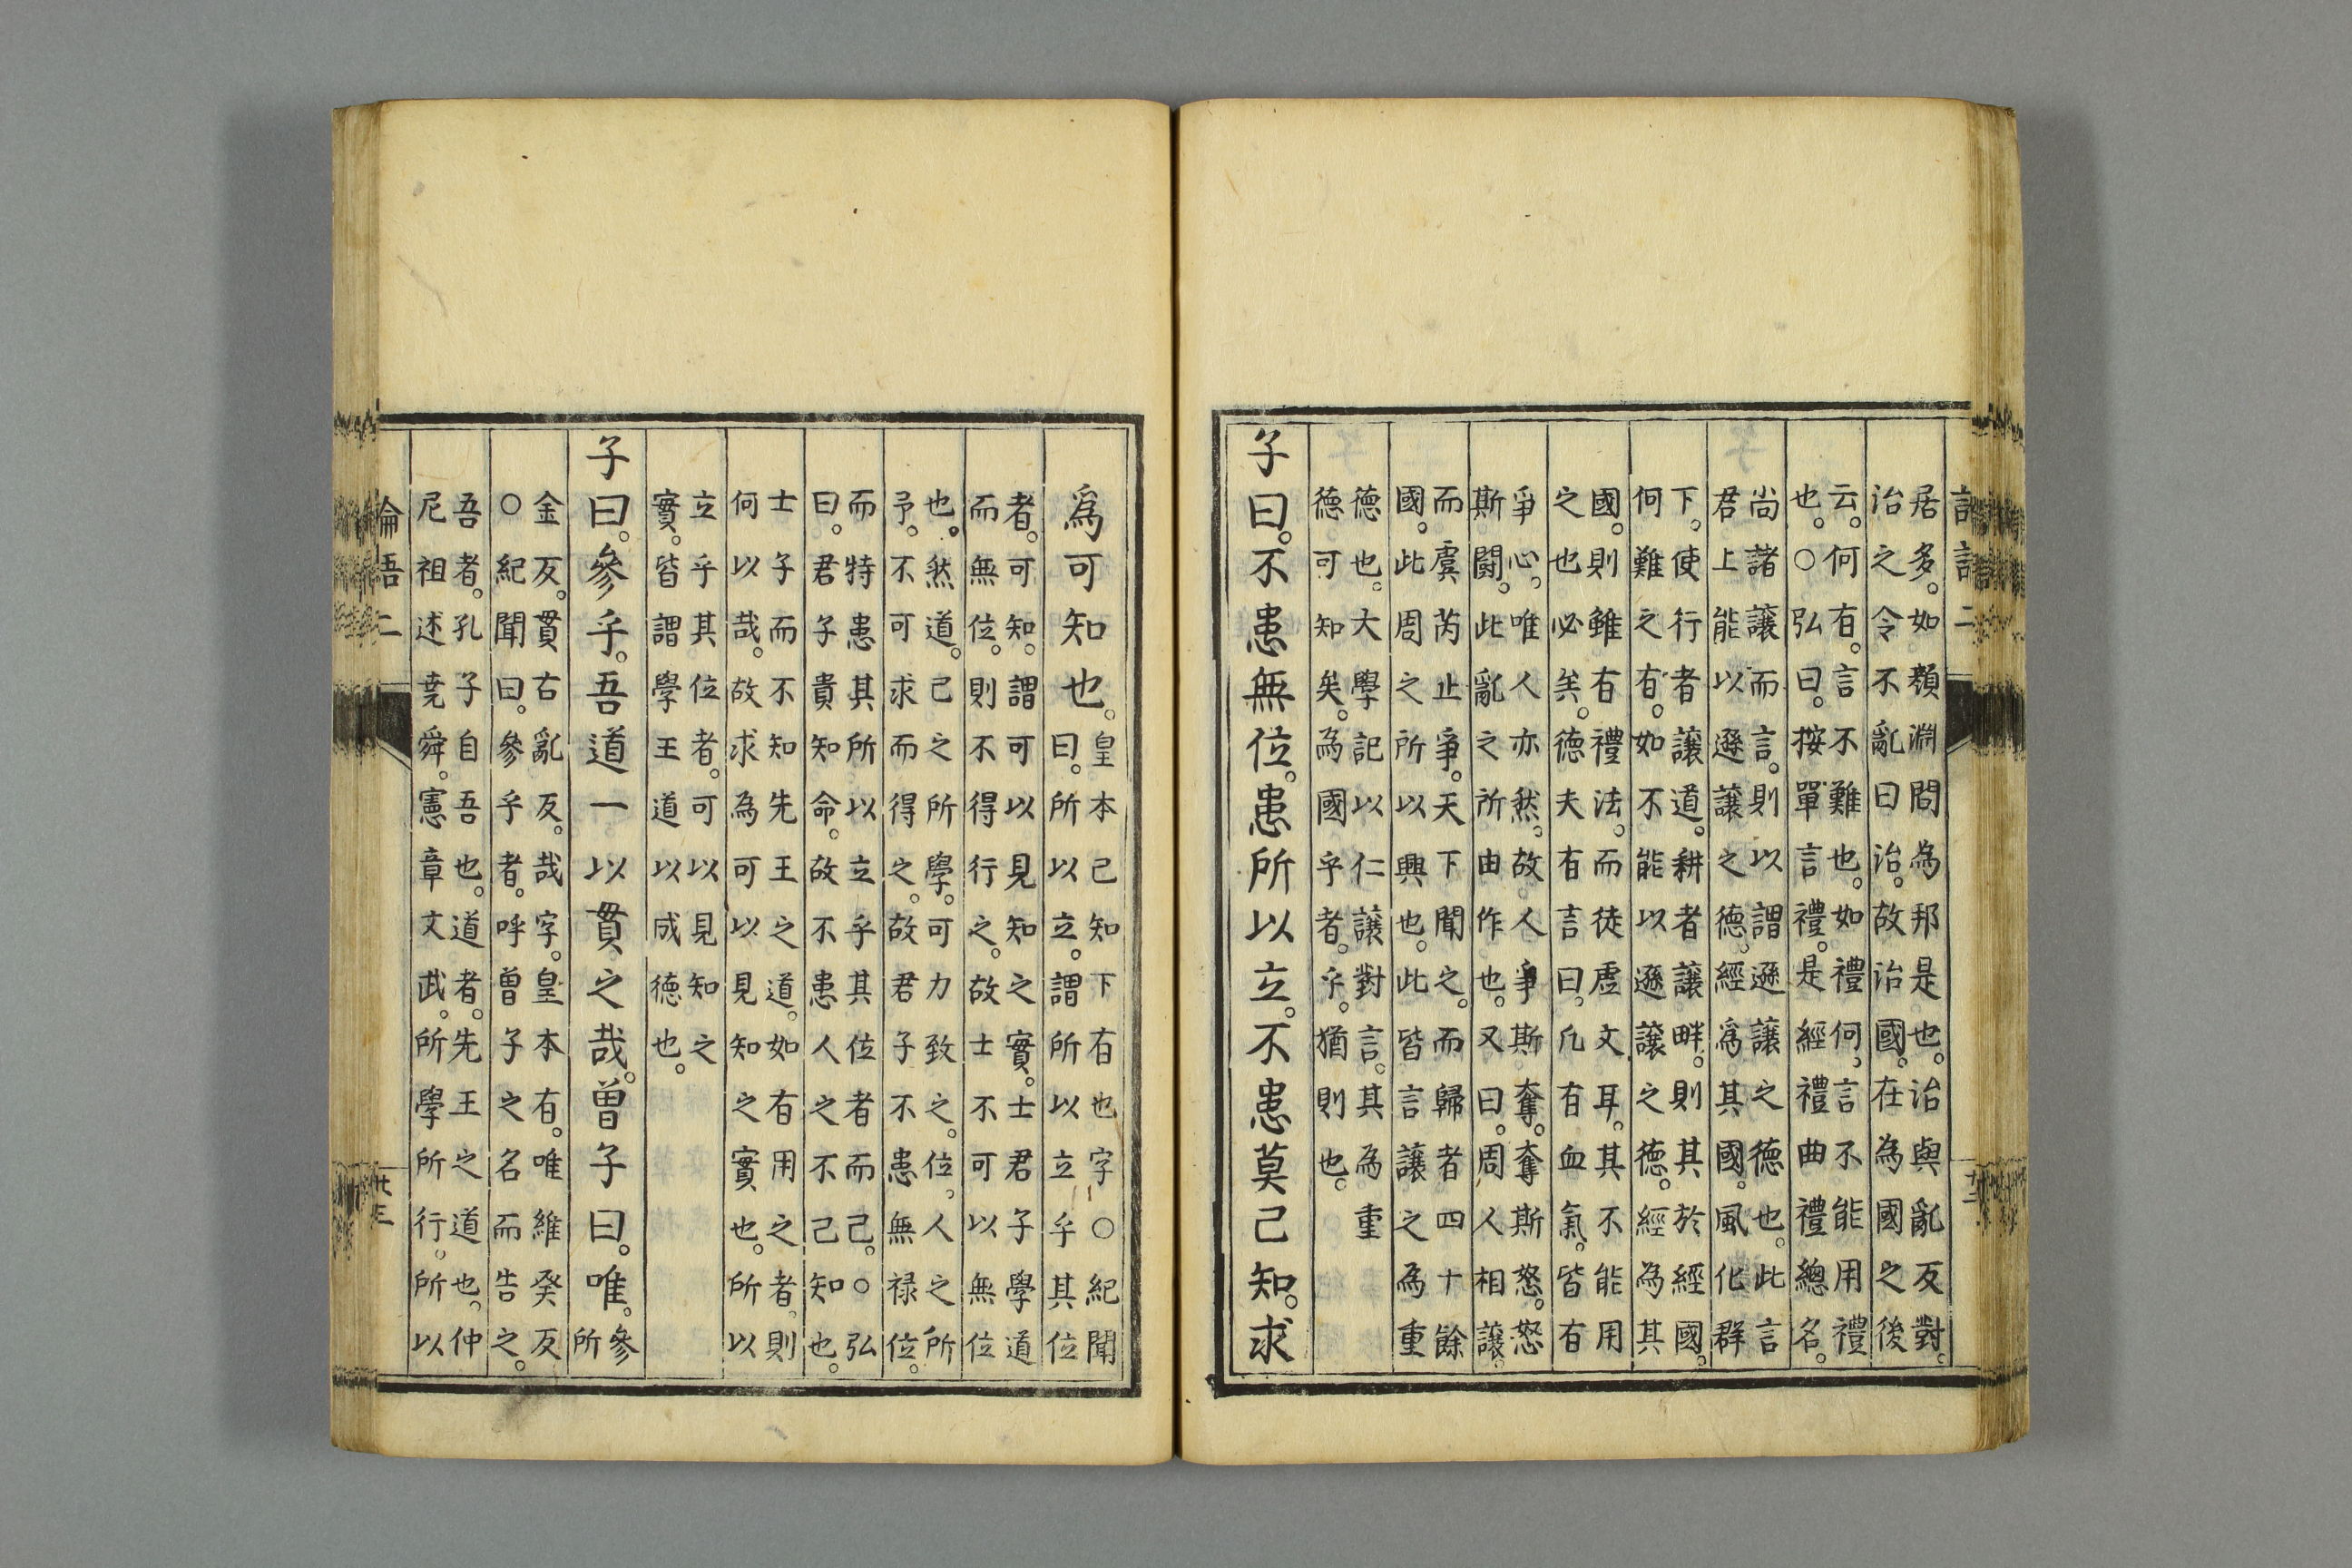 居多。如顏淵問為邦是也。治與亂反對。
治之令不亂曰治。故治國。在為國之後
云。何有。言不難也。如禮何。言不能用禮
也。○弘曰。按單言禮。是經禮曲禮總名。
尚諸讓而言。則以謂遜讓之德也。此言
君上能以遜讓之德。經爲其國。風化群
下。使行者讓道。耕者讓畔。則其於經國。
何難之有。如不能以遜讓之德。經為其
國。則雖有禮法。而徒虛文耳。其不能用
之也必矣。德夫有言曰。凡有血氣。皆有
爭心。唯人亦然。故人爭斯奪。奪斯怒。怒
斯鬪。此亂之所由作也。又曰。周人相讓。
而虞芮止爭。天下聞之。而歸者四十餘
國。此周之所以興也。此皆言讓之為重
德也。大學記以仁讓對言。其為重
德可知矣。為國乎者。乎。猶則也。
子曰。不患無位。患所以立。不患莫己知。求
爲可知也。
皇本己知下有也字○紀聞
曰。所以立。謂所以立乎其位
者。可知。謂可以見知之實。士君子學道
而無位。則不得行之。故士不可以無位
也。然道。己之所學。可力致之。位。人之所
予。不可求而得之。故君子不患無禄位。
而特患其所以立乎其位者而己。○弘
曰。君子貴知命。故不患人之不己知也。
士子而不知先王之道。如有用之者。則
何以哉。故求為可以見知之實也。所以
立乎其位者。可以見知之
實。皆謂學王道以成德也。
子曰。參乎。吾道一以貫之哉。曾子曰。唯。
參
所
金反。貫右亂反。哉字。皇本有。唯維癸反
○紀聞曰。參乎者。呼曾子之名而告之。
吾者。孔子自吾也。道者。先王之道也。仲
尼祖述堯舜。憲章文武。所學所行。所以
論吾二
廿三